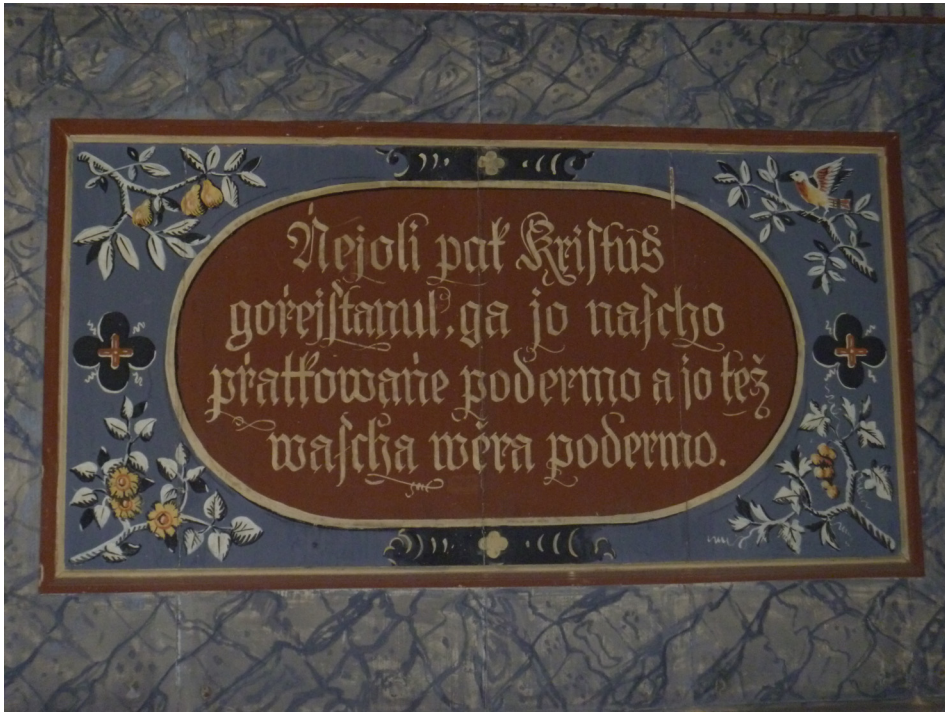 Ńejoli pak Kriſtus
goŕejſtanuł, ga jo naſcho
pŕatkowańe podermo a jo też
waſcha wěra podermo.